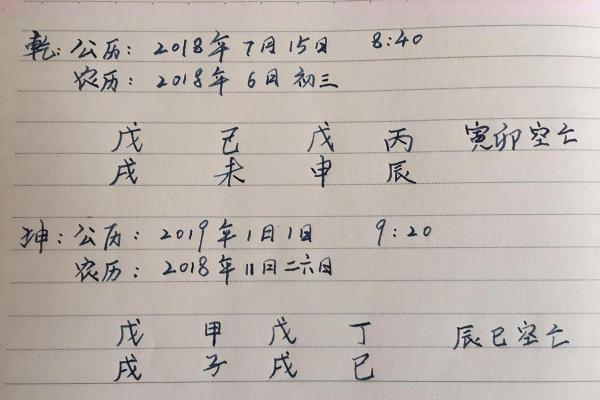 乾：公历：2018年7月15日 8:40
农历：2018年6月初三
戊 己 戊 丙 寅卯空亡
戌 未 申 辰
坤：公历：2019年1月1日 9:20
农历：2018年11月二六日
戊 甲 戊 丁 辰巳空亡
戌 子 戌 巳